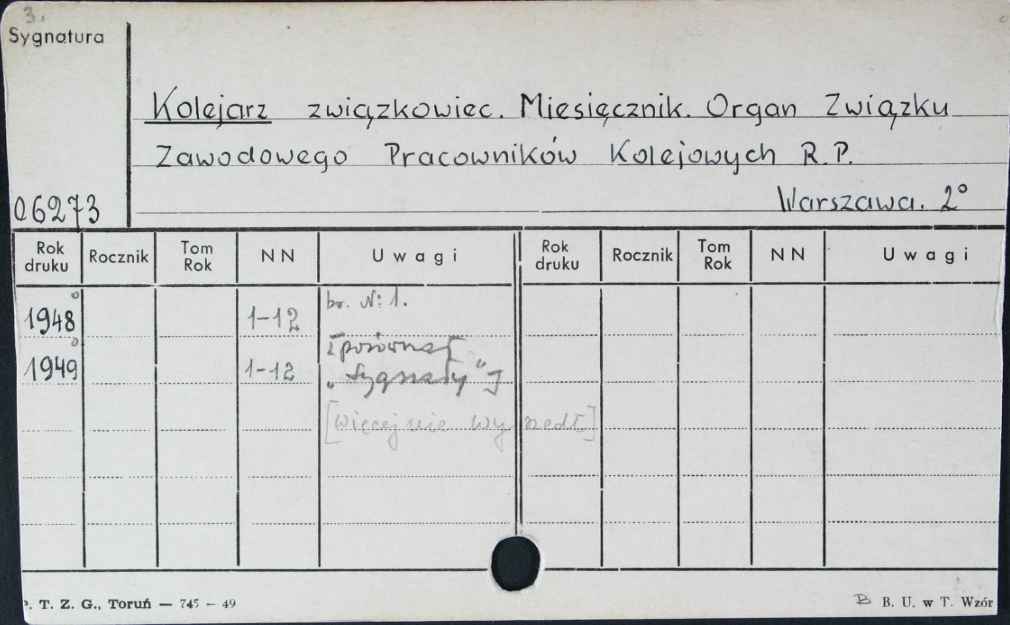 3.
Sygnatura
Kolejarz związkowiec. Miesięcznik. Organ Związku
Zawodowego Pracowników Kolejowych R.P.
06273
Warszawa. 2°
Rok druku Rocznik Tom Rok NN Uwagi Rok druku Rocznik Tom Rok NN Uwagi
br. N: 1.
1948 1-12
porównaj
1949 1-12 „Sygnały"]
[więcej nie wyszedł]
. T. Z. G., Toruń — 745 — 49
B B. U. w T. Wzór